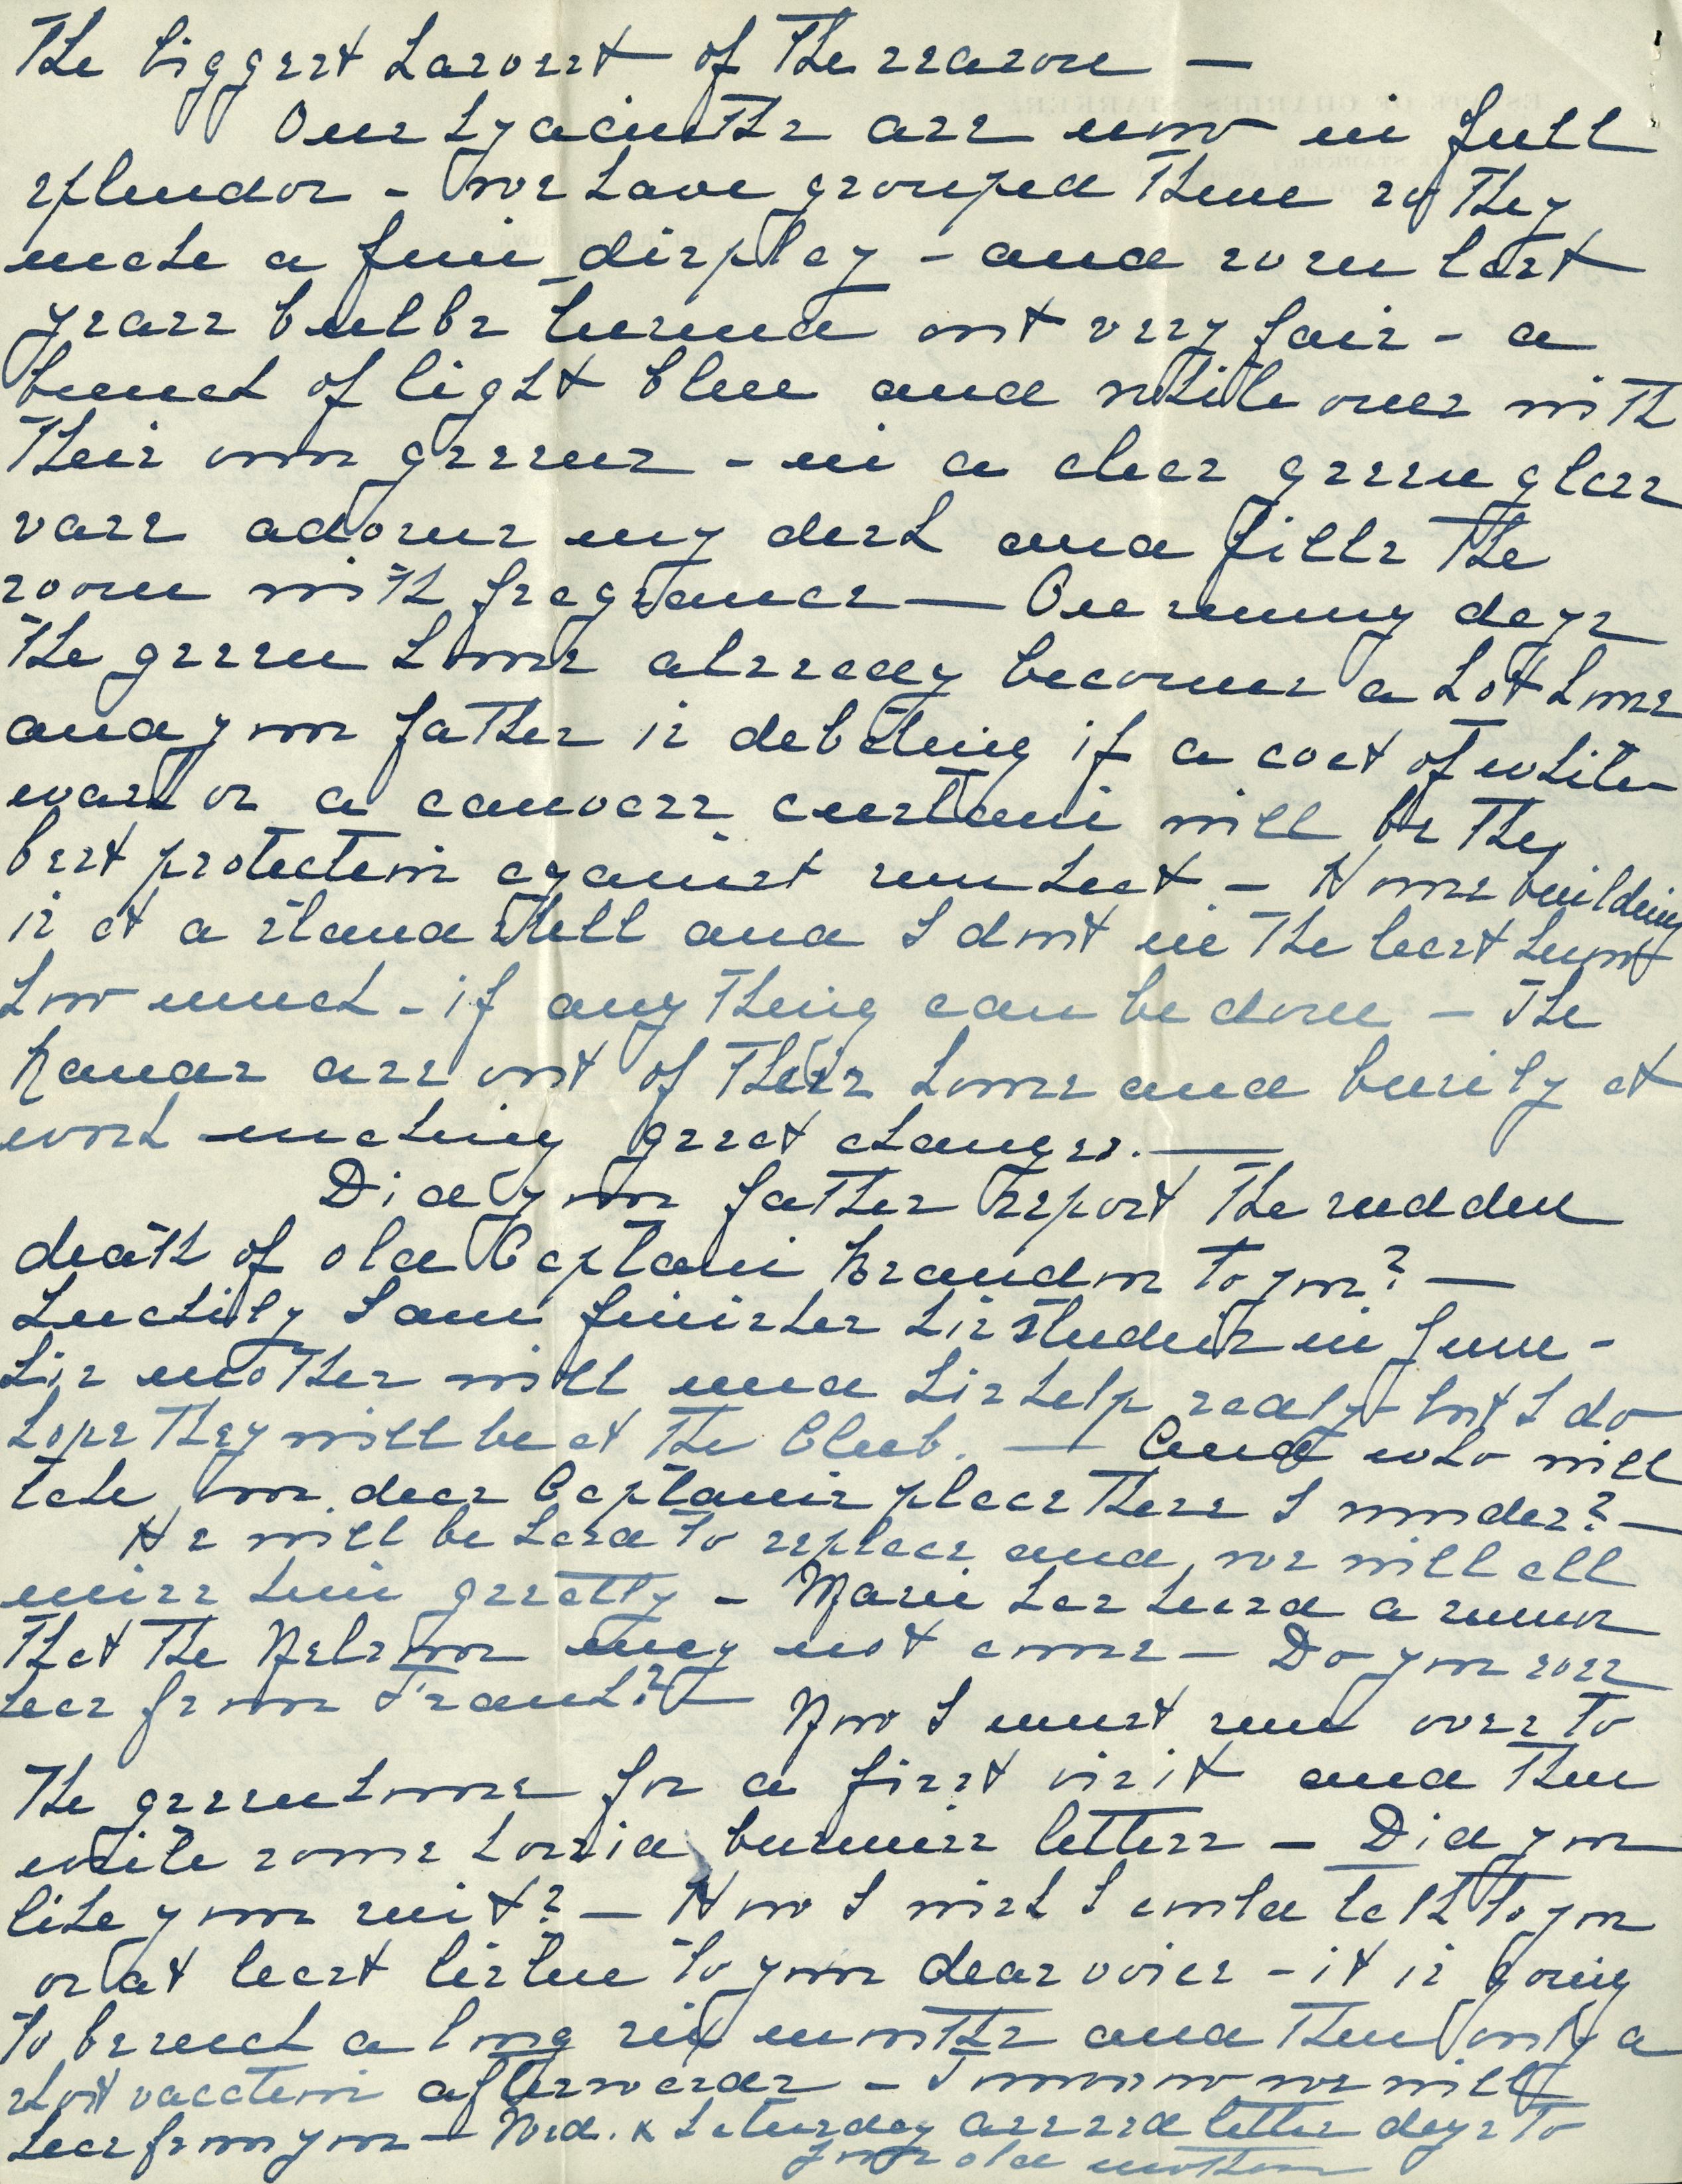 The biggest harvest of the season —
Our hyacinths are now in full
splendor - we have grouped them so they
make a fine display - and even last
years bulbs turned out very fair - a
bunch of light blue and white ones with
their own greens - in a clear green glass
vase adorns my desk and fills the
room with fragrance — On sunny days
the green house already becomes a hot house
and your father is debating if a coat of white
wash or a canvass curtain will be the
best protection against sun heat - House building
is at a stand still and I don't in the least know
how much - if any thing can be done - The
Rands are out of their house and busily at
work making great changes. —
Did your father report the sudden
death of old Captain Brandon to you? —
Luckily Sam finishes his studies in June -
his mother will need his help sadly - but I do
hope they will be at the Club. — And who will
take our dear Captains place there I wonder? —
He will be hard to replace and we will all
miss him greatly - Marie has heard a rumor
that the Nelsons may not come - Do you ever
hear from Frank? — Now I must run over to
the greenhouse for a first visit and then
write some horrid business letters — Did you
like your suit? — How I wish I could talk to you
or at least listen to your dear voice - it is going
to be such a long six months and then only a
short vacation afterwards - Tomorrow we will
hear from you — Wed. & Saturday are red letter days to
your old mother